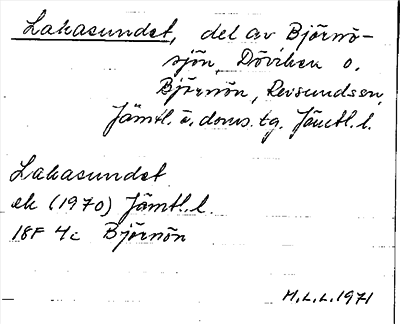 Lakasundet, del av Björnö-
sjön, Döviken o.
Björnön, Revsundsen,
Jämtl. ö. doms. tg. Jämtl. l.
Lakasundet
ek (1970) Jämtl. l.
18F 4c Björnön
M.L.L. 1971